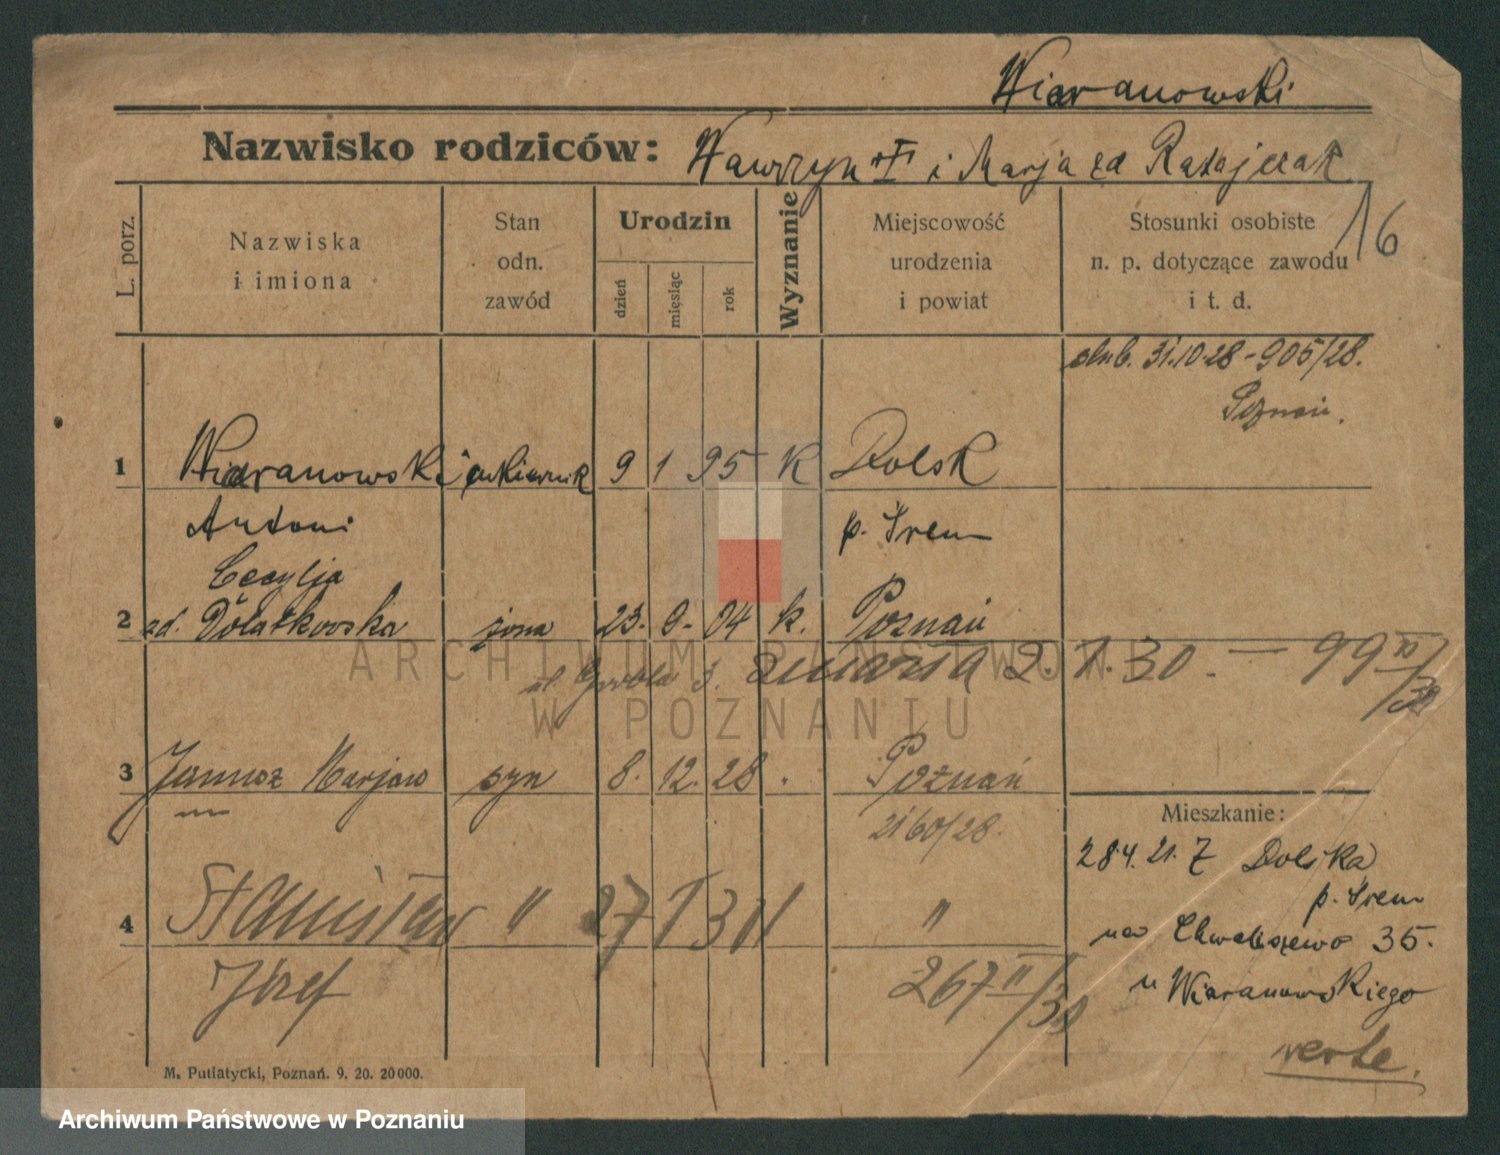 Wiaranowski
Nazwisko rodziców: Wawrzyn i Marja zd Ratajczak
16
L. porz.
Nazwiska i imiona
Stan odn. zawód
Urodzin
dzień
miesiąc
rok
Wyznanie
Miejscowość urodzenia i powiat
Stosunki osobiste n. p. dotyczące zawodu i t. d.
ślub. 31.10.28 - 905/28.
Poznań.
1 Wiaranowski cukiernik 9 1 95 K Dolsk
Antoni p. Śrem
Cecylja
2 zd. Dolatkowska żona 23. 04 k. Poznań
ul. Grobla 3. zmarła 2. 1. 30. — 99
3 Janusz Marjan syn 8. 12. 28 Poznań
2160/28.
Mieszkanie:
28.4.21. Z Dolska
p. Śrem
na Chwaliszewo 35.
u Wiaranowskiego
verte.
4 Stanisław " 27 I 30 "
Józef 267 II/30
M. Putiatycki, Poznań. 9. 20. 20000.
ARCHIWUM PAŃSTWOWE
W POZNANIU
Archiwum Państwowe w Poznaniu